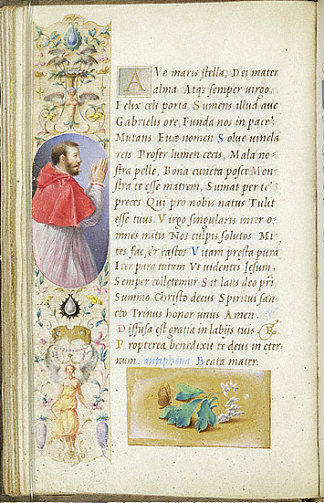 AVe maris stella, Dei mater
alma Atq; semper virgo,
Felix cęli porta. Sumens illud aue
Gabrielis ore, Funda nos in pace
Mutans Euæ nomen Solue vincla
reis Profer lumen cecis, Mala no-
stra pelle, Bona cuncta posce. Mon
stra te esse matrem, Sumat per te
preces Qui pro nobis natus Tulit
esse tuus. Virgo singularis inter o-
mnes mitis Nos culpis solutos Mi-
tes fac, & castos Vitam presta purā
Iter para tutum Vt videntes Iesum,
Semper colletemur Sit laus deo pri
Summo Christo decus Spiritui san
cto Trinus honor unus Amen.
Diffusa est gratia in labijs tuis R.
Propterea benedixit te deus in eter-
num. antiphona Beata mater.